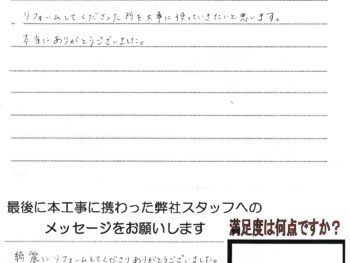 リフォームしてくださった所を大事に使っていきたいと思います。
本当にありがとうございました。
最後に本工事に携わった弊社スタッフへの
メッセージをお願いします
満足度は何点ですか?
綺麗にリフォームしてくださりありがとうございました。